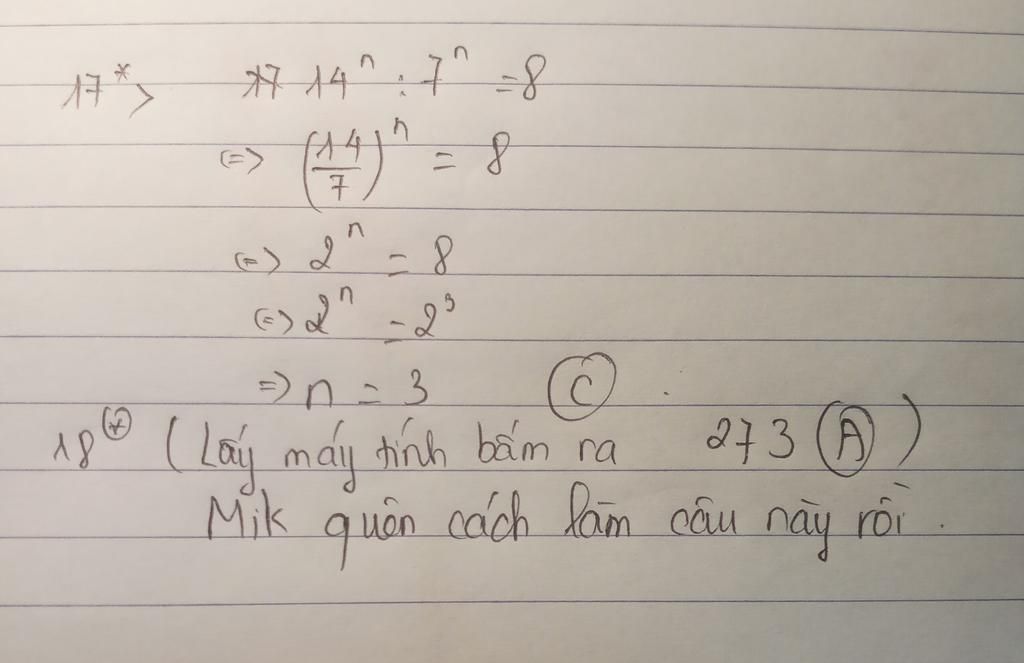 17*> 14ⁿ : 7ⁿ = 8
<=> (14/7)ⁿ = 8
<=> 2ⁿ = 8
<=> 2ⁿ = 2³
=> n = 3 C .
18* (Lấy máy tính bấm ra 273 A)
Mik quên cách làm câu này rồi .